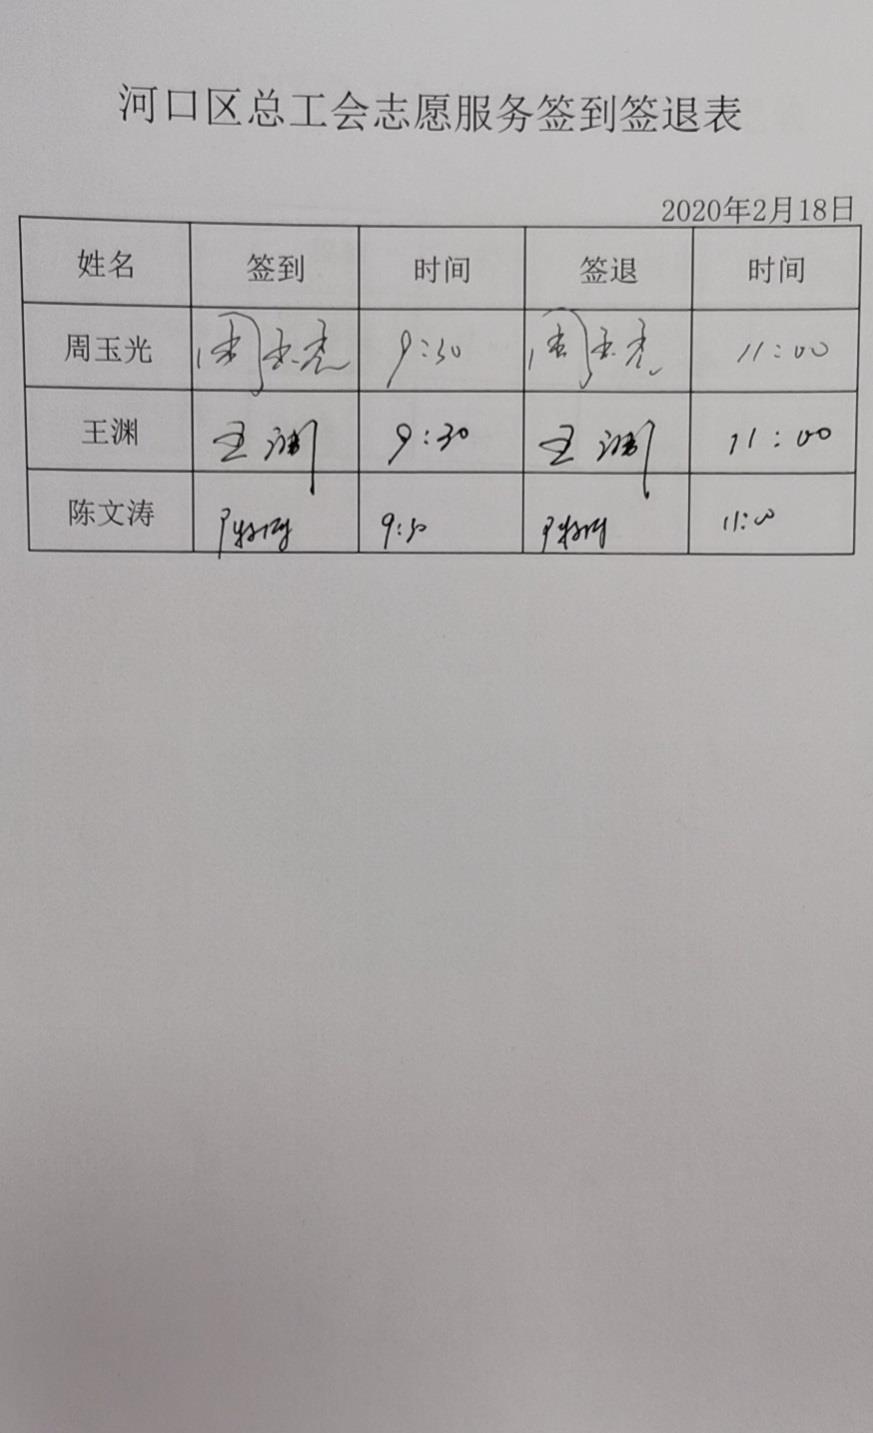 河口区总工会志愿服务签到签退表
2020年2月18日
姓名 签到 时间 签退 时间
周玉光 周玉光 9:30 周玉光 11:00
王渊 王渊 9:30 王渊 11:00
陈文涛 陈文涛 9:30 陈文涛 11:00